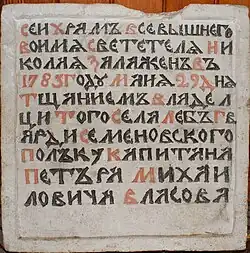 СЕИ ХРАМЪ ВСЕВЫШНЕГО
ВОИМЯ СВЕТЕТЕЛЯ НИ
КОЛАЯ ЗАЛАЖЕНЪ ВЪ
1783 ГОДУ МАИЯ 29 Д НЯ
ТЩАНИЕМЪ ВЛАДЕЛ
ЦИ ТОГО СЕЛА ЛЕБЪ ГВ
АРДИ СЕМЕНОВСКОГО
ПОЛЪКУ КАПИТАНА
ПЕТЪРЯ МИХАИ
ЛОВИЧЯ ВЛАСОВА